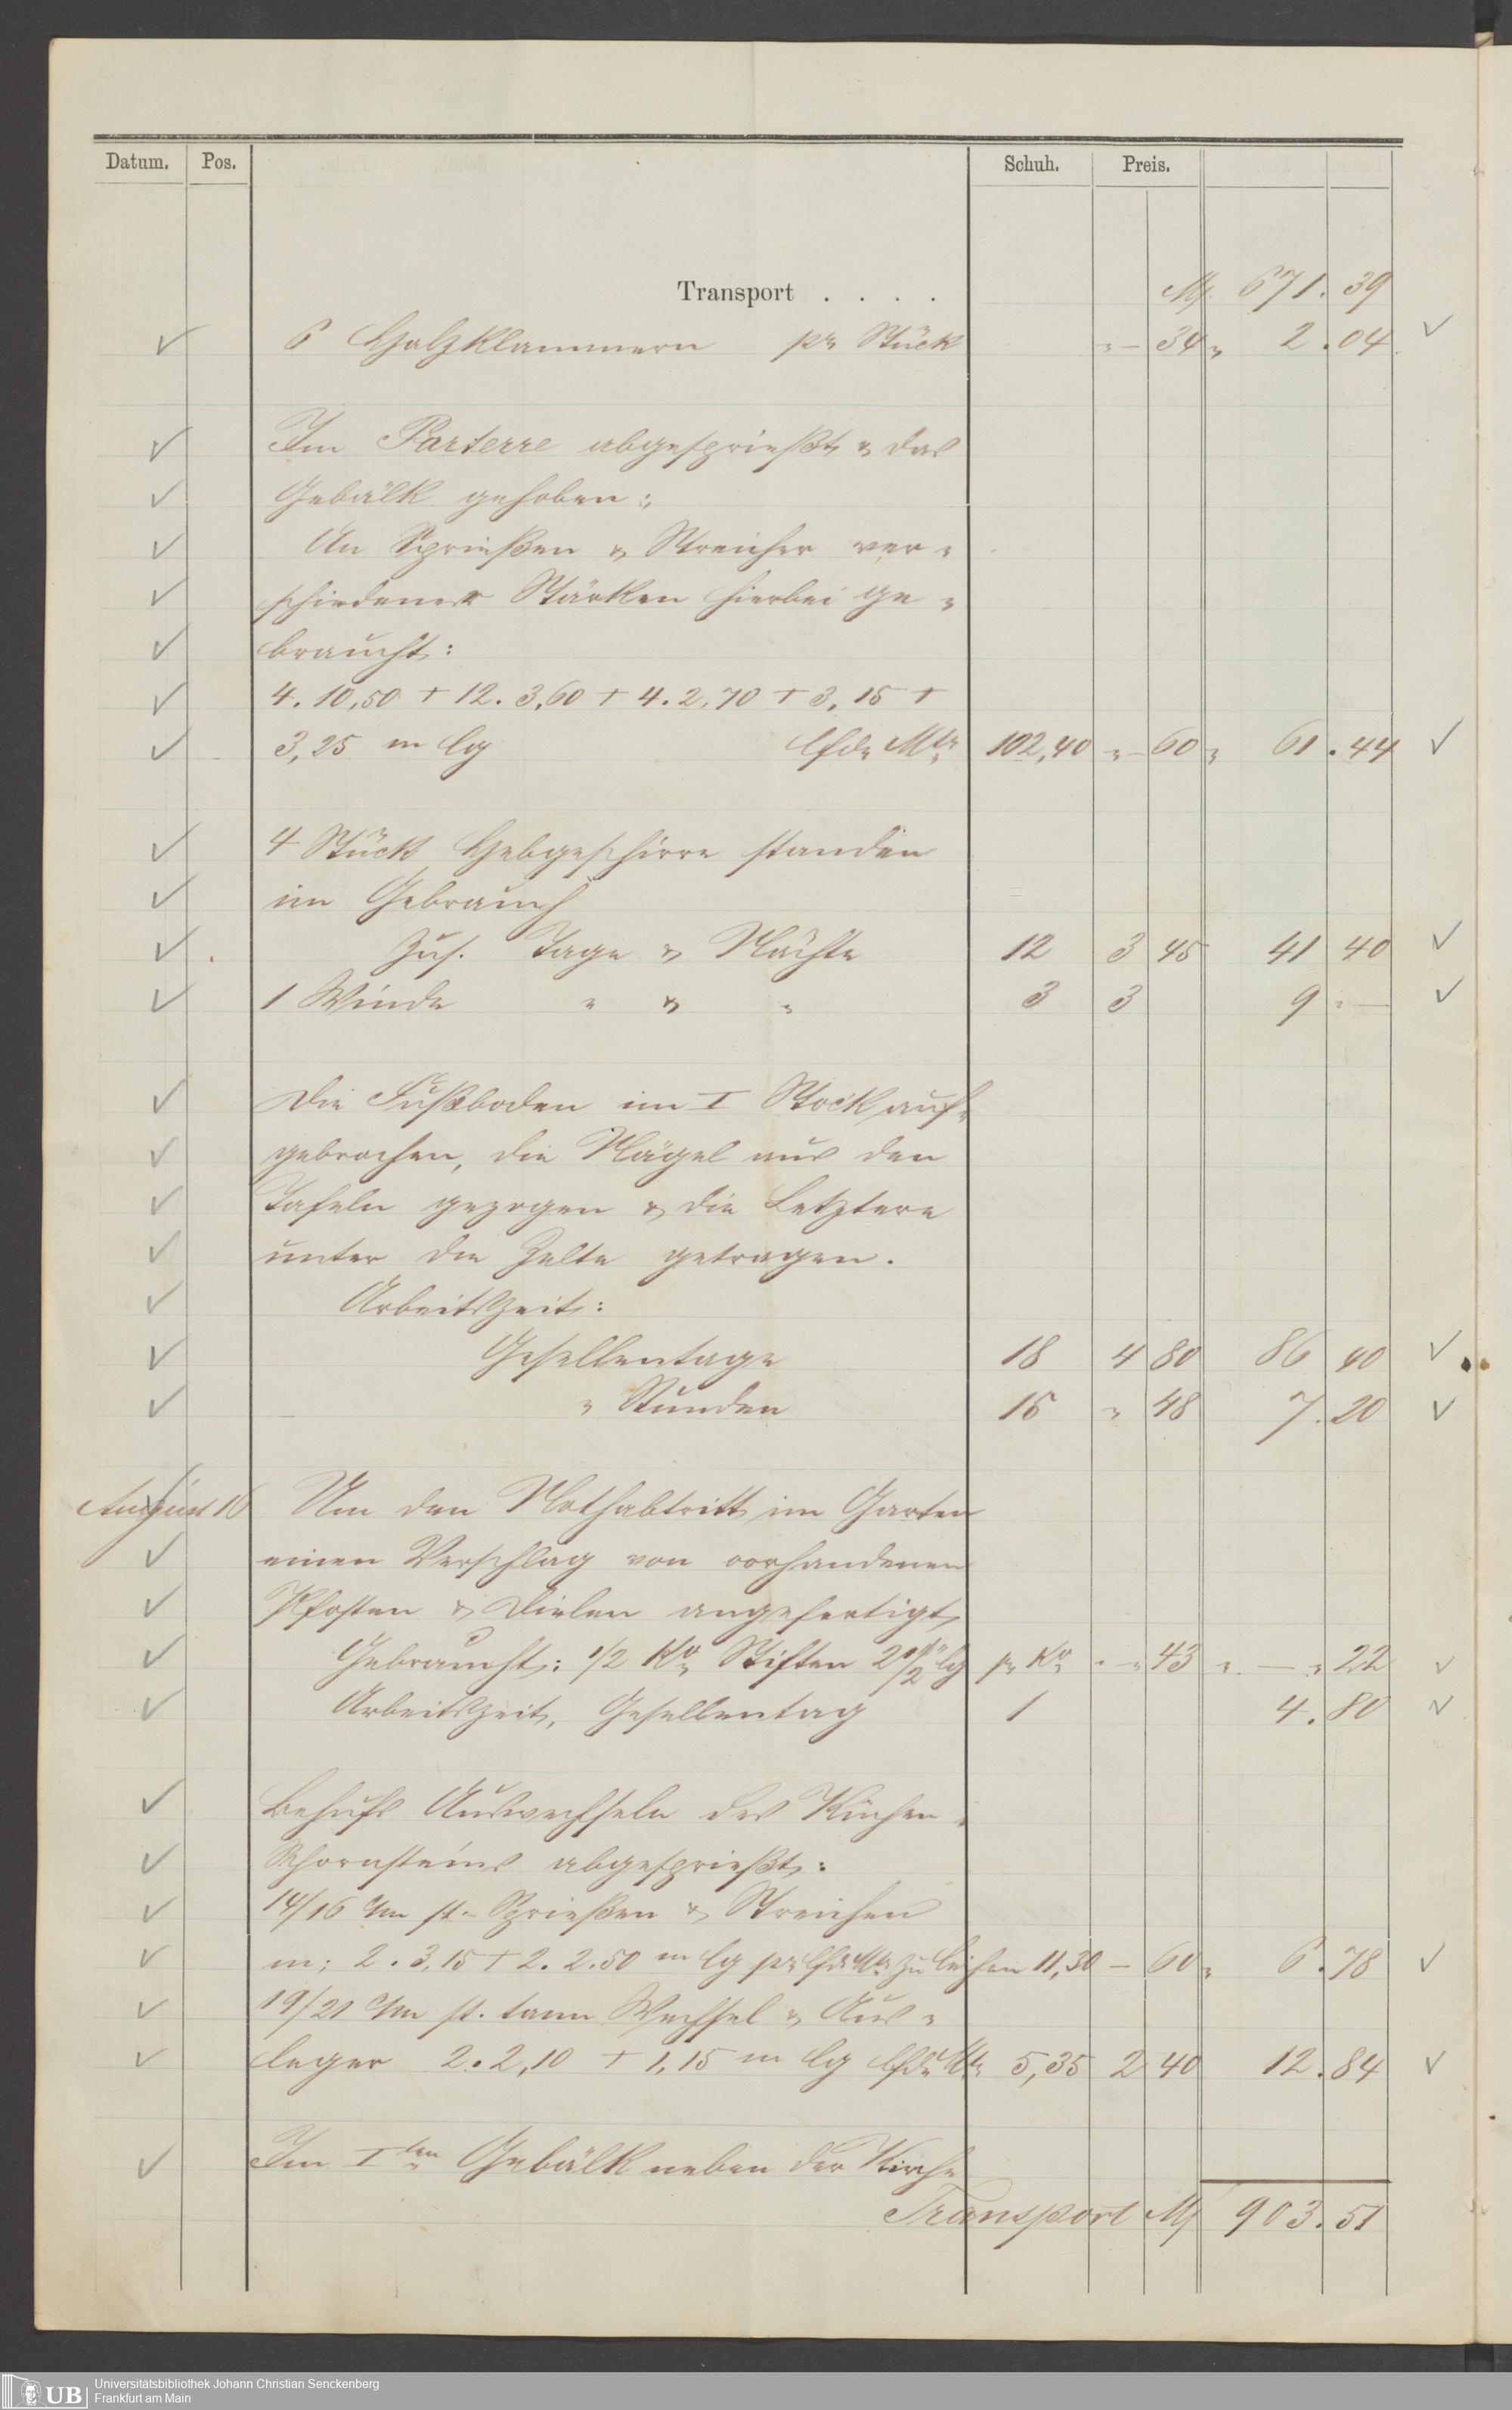 Datum. Pos. Schuh. Preis.
Transport . . . . M. 671. 39
6 Holzklammern pr. Stück „ – 34 „ 2. 04
Im Parterre abgesprießt & das
Gebälk gehoben:
An Sprießen & Streicher ver-
schiedener Stärken hierbei ge-
braucht:
4. 10,50 + 12. 3,60 + 4. 2,70 + 3,15 +
3,25 m lg lfde Mtr 102,40 „ – 60 „ 61. 44
4 Stück Hebgeschirre standen
im Gebrauch
Zus. Tage & Nächte 12 3 45 41 40
1 Winde „ & „ 3 3 9 „ —
Die Fußboden im I Stock auf-
gebrochen, die Nägel aus den
Tafeln gezogen & die Letztere
unter die Zelte getragen.
Arbeitszeit:
Gesellentage 18 4 80 86 40
„ Stunden 15 „ 48 7. 20
August 16 Um den Nothabtritt im Garten
einen Verschlag von vorhandenen
Pfosten & Dielen angefertigt
Gebraucht: 1/2 Ko Stiften 2 1/2" lg pr Ko „ – 43 „ — „ 22
Arbeitszeit, Gesellentag 1 4. 80
Behufs Auswechseln des Küchen-
Schornsteins abgesprießt:
14/16 c/m st. Sprießen & Streichen
m: 2. 3,15 + 2. 2.50 m lg pr lfde Mtr zu leihen 11,30 – 60 „ 6. 78
19/21 c/m st. tann Wechsel & Aus-
leger 2. 2,10 + 1,15 m lg lfde Mtr 5,35 2 40 12. 84
Im Iten Gebälk neben der Küche
Transport M. 903. 51
UB Universitätsbibliothek Johann Christian Senckenberg
Frankfurt am Main